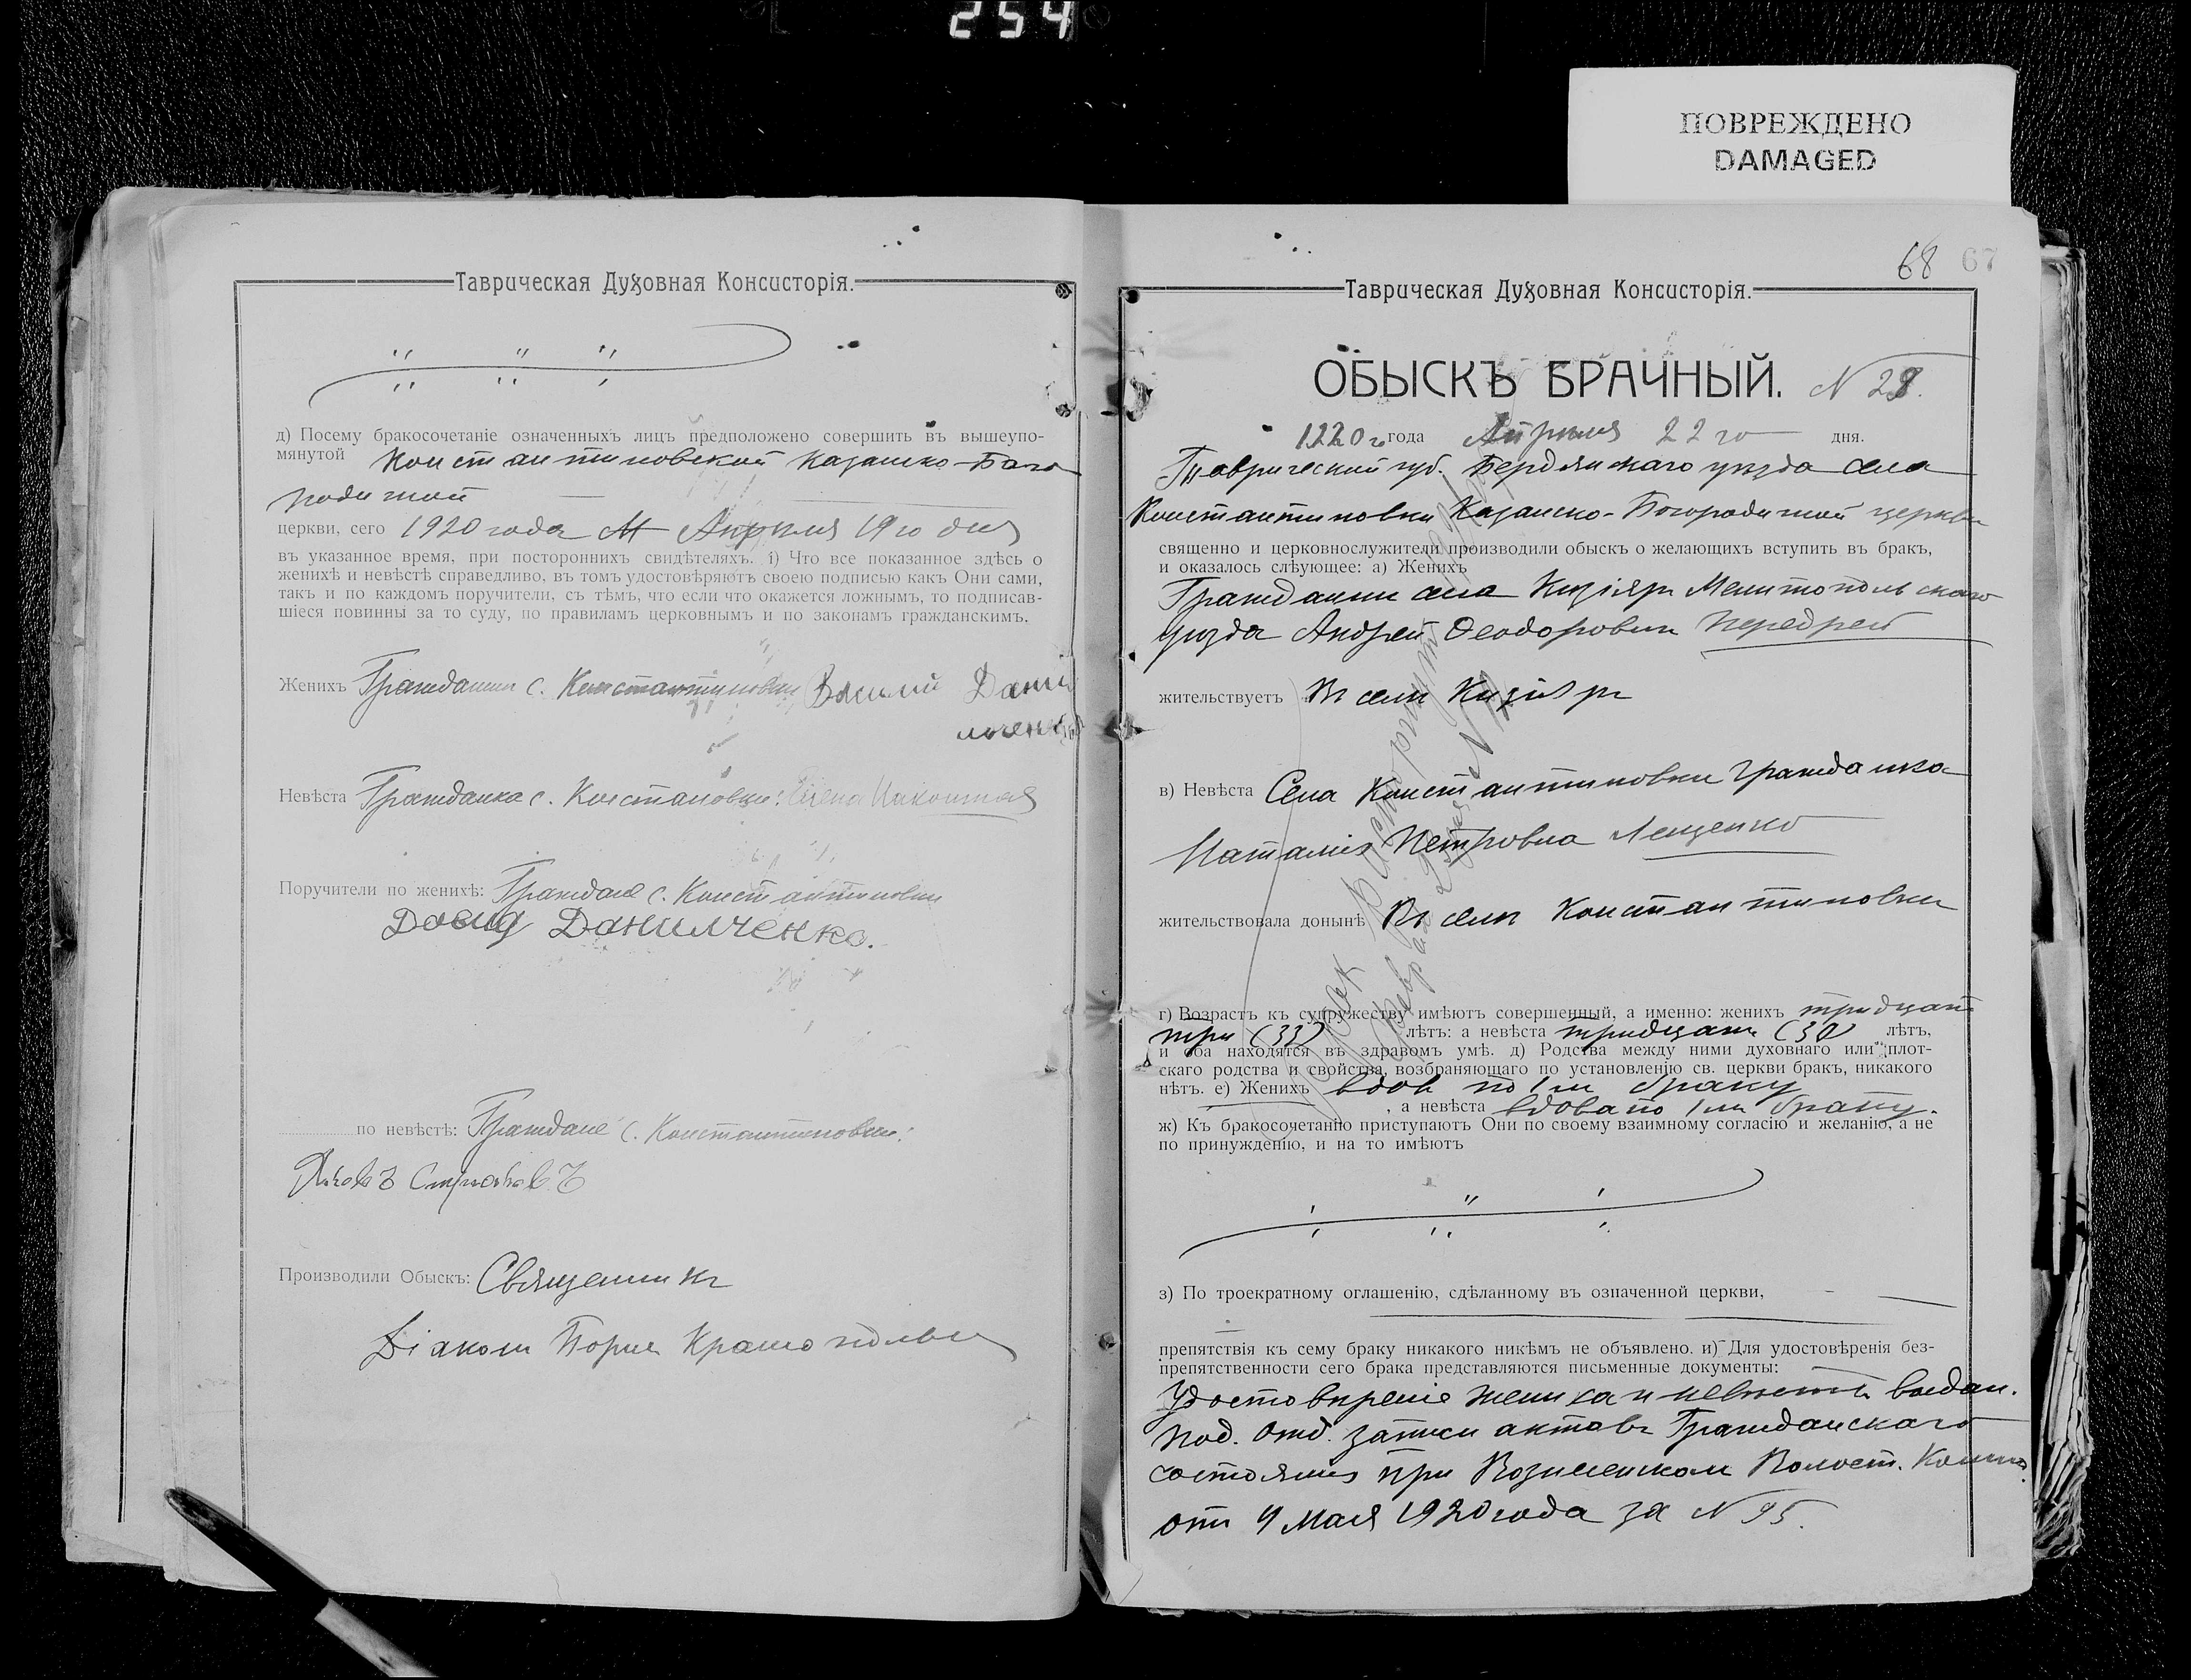 254
ПОВРЕЖДЕНО
DAMAGED
Таврическая Духовная Консисторія.
д) Посему бракосочетаніе означенныхъ лицъ предположено совершить въ вышеупо-
мянутой Константиновской Казанско-Бого
родичной
церкви, сего 1920 года М Апрѣля 19го дня
въ указанное время, при постороннихъ свидѣтеляхъ. і) Что все показанное здѣсь о
женихѣ и невѣстѣ справедливо, въ томъ удостовѣряютъ своею подписью какъ Они сами,
такъ и по каждомъ поручители, съ тѣмъ, что если что окажется ложнымъ, то подписав-
шіеся повинны за то суду, по правиламъ церковнымъ и по законамъ гражданскимъ.
Женихъ Гражданин с. Константиновки Василий Дани
льченко
Невѣста Гражданка с. Констановки: Елена
Поручители по женихѣ: Граждане с. Константиновки
Давид Данилченко.
по невѣстѣ: Граждане с. Константиновки:
Яковъ
Производили Обыскъ: Священникъ
Діакон Борис
68 67
Таврическая Духовная Консисторія.
ОБЫСКЪ БРАЧНЫЙ. N 28.
1920 го года Апрѣля 22 го дня.
Таврический губ. Бердянскаго уѣзда села
Константиновки Казанско-Богородичной церкви
священно и церковнослужители производили обыскъ о желающихъ вступить въ бракъ,
и оказалось слѣующее: а) Женихъ
Гражданин села Кизіяръ Мелитопольскаго
уѣзда Андрей Феодоровичъ Передрей
жительствуетъ Въ селѣ Кизіяръ
в) Невѣста Села Константиновки гражданка
Наталія Петровна Лещенко
жительствовала донынѣ Въ селѣ Константиновки
г) Возрастъ къ супружеству имѣютъ совершенный, а именно: женихъ тридцать
три (33) лѣтъ: а невѣста тридцать (30) лѣтъ,
и оба находятся въ здравомъ умѣ. д) Родства между ними духовнаго или плот-
скаго родства и свойства, возбраняющаго по установленію св. церкви бракъ, никакого
нѣтъ. е) Женихъ вдов по 1 м браку
, а невѣста вдова по 1 м браку.
ж) Къ бракосочетанію приступаютъ Они по своему взаимному согласію и желанію, а не
по принужденію, и на то имѣютъ
з) По троекратному оглашенію, сдѣланному въ означенной церкви,
препятствія къ сему браку никакого никѣмъ не объявлено. и) Для удостовѣренія без-
препятственности сего брака представляются письменные документы:
Удостовѣреніе жениха и невѣсты выдан.
под. отд. записи актовъ Гражданскаго
состоянія при Вознесенском Волост.
от 4 Мая 1920 года за N 95.